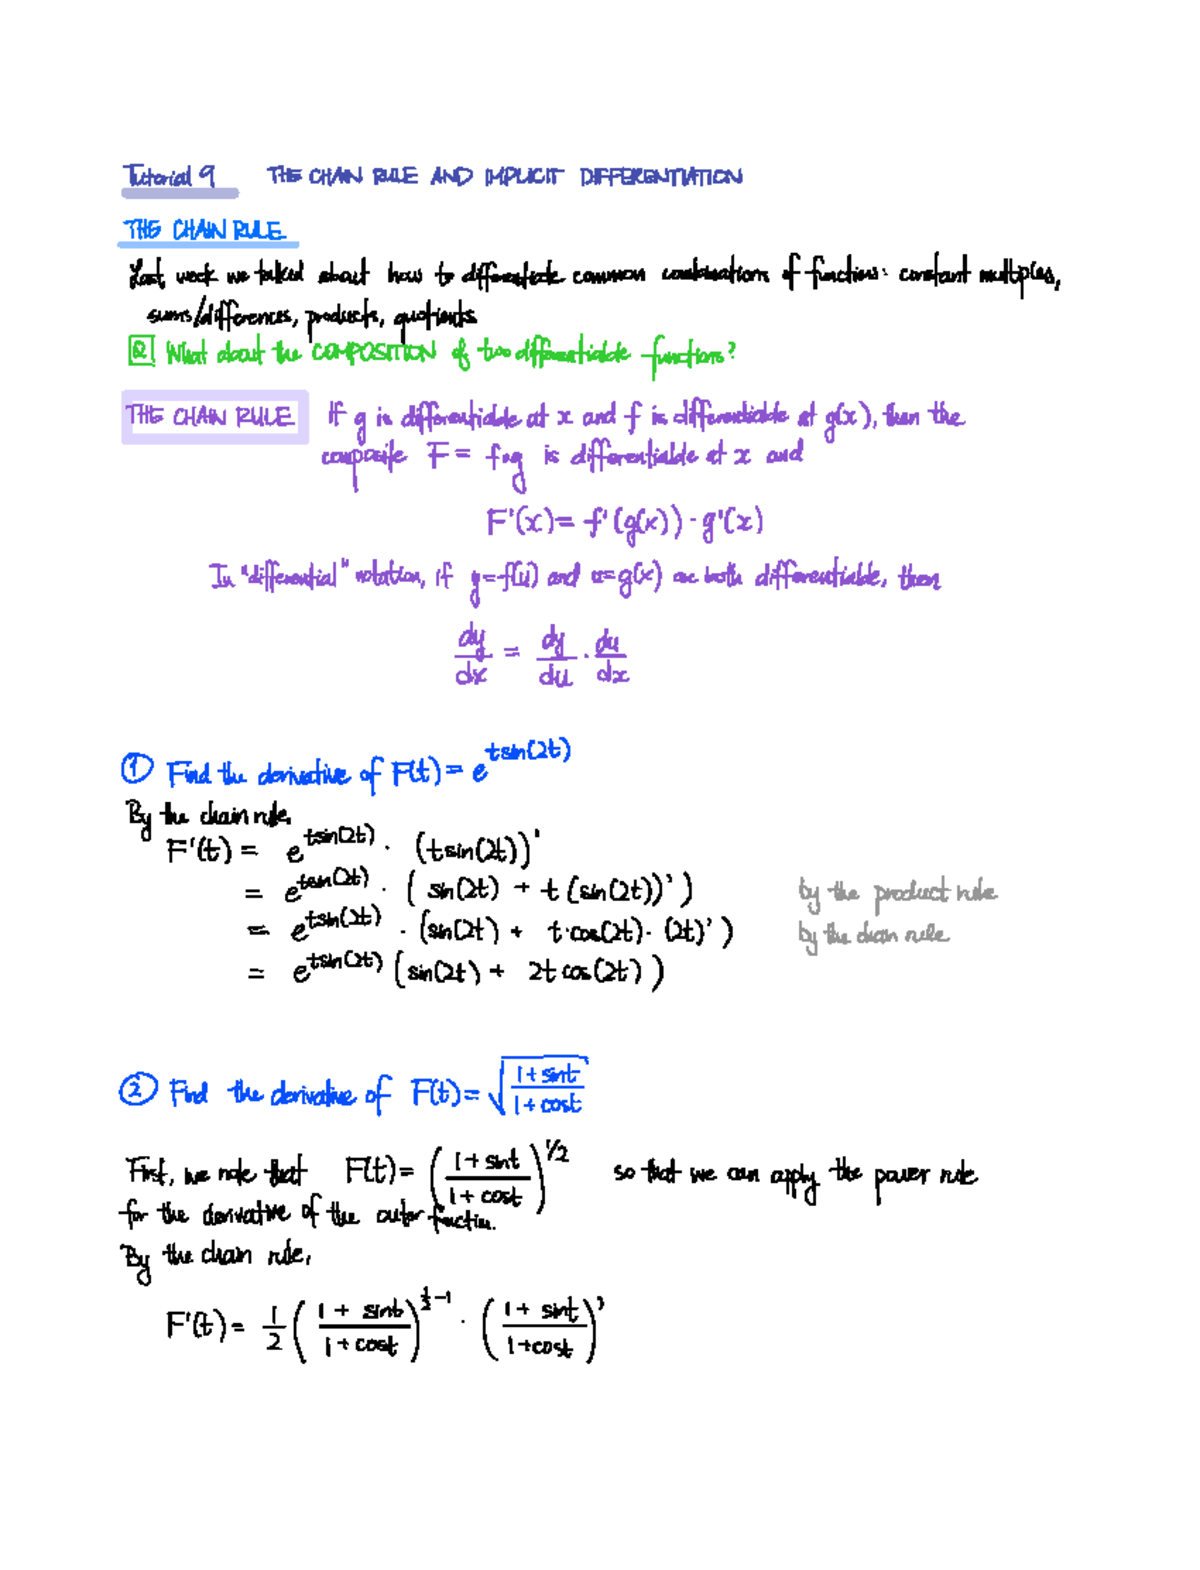 Tutorial 9 THE CHAIN RULE AND IMPLICIT DIFFERENTIATION
THE CHAIN RULE
Last week we talked about how to differentiate common combinations of functions: constant multiples,
sums/differences, products, quotients
Q What about the COMPOSITION of two differentiable functions?
THE CHAIN RULE If g is differentiable at x and f is differentiable at g(x), then the
composite F = f∘g is differentiable at x and
F'(x) = f'(g(x)) · g'(x)
In "differential" notation, if y=f(u) and u=g(x) are both differentiable, then
dy/dx = dy/du · du/dx
① Find the derivative of F(t) = e^{tsin(2t)}
By the chain rule,
F'(t) = e^{tsin(2t)} · (tsin(2t))'
= e^{tsin(2t)} · (sin(2t) + t(sin(2t))') by the product rule
= e^{tsin(2t)} · (sin(2t) + t·cos(2t)·(2t)') by the chain rule
= e^{tsin(2t)} (sin(2t) + 2t cos(2t))
② Find the derivative of F(t) = √((1+sint)/(1+cost))
First, we note that F(t) = ((1+sint)/(1+cost))^{1/2} so that we can apply the power rule
for the derivative of the outer function.
By the chain rule,
F'(t) = 1/2 ((1+sint)/(1+cost))^{1/2-1} · ((1+sint)/(1+cost))'